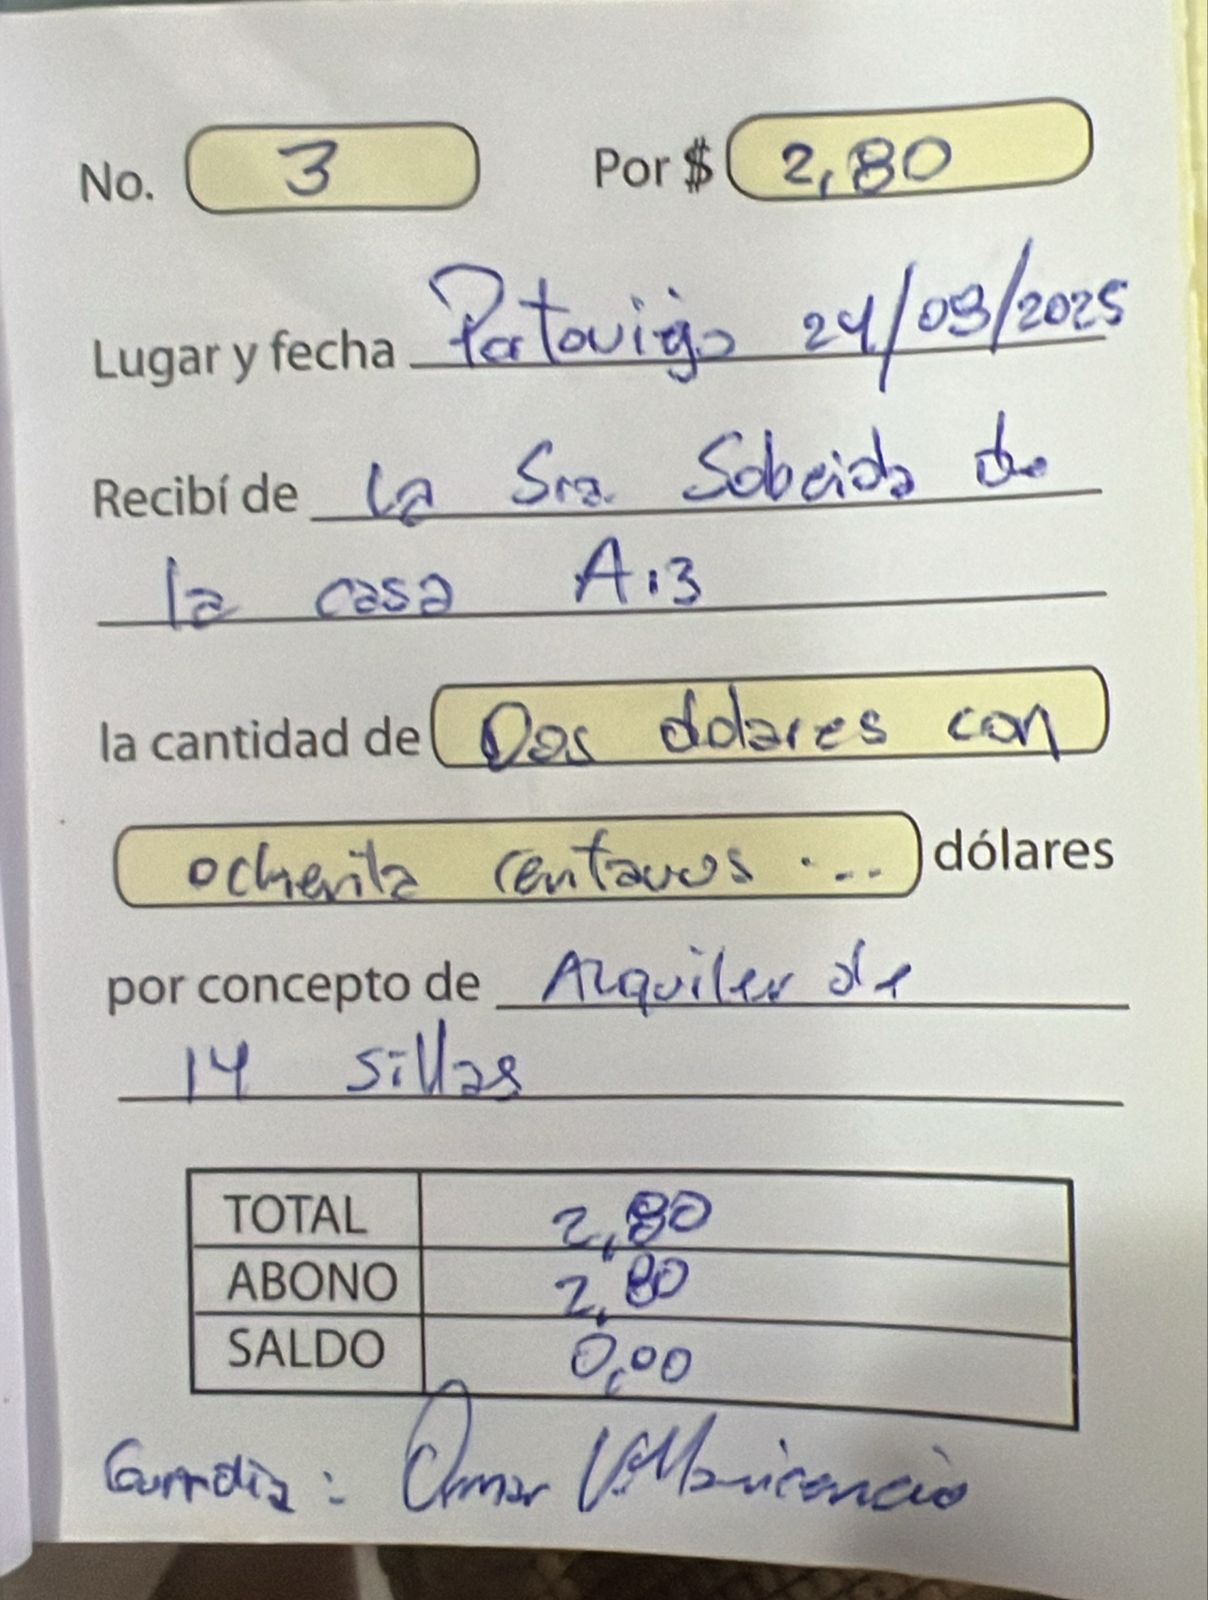 No. 3 Por $ 2,80
Lugar y fecha Portoviejo 24/09/2025
Recibí de la Sra. Sobeida de
la casa A:3
la cantidad de Dos dolares con
ochenta centavos ... dólares
por concepto de Alquiler de
14 sillas
TOTAL 2,80
ABONO 2,80
SALDO 0,00
Guardia: Omar Villavicencio